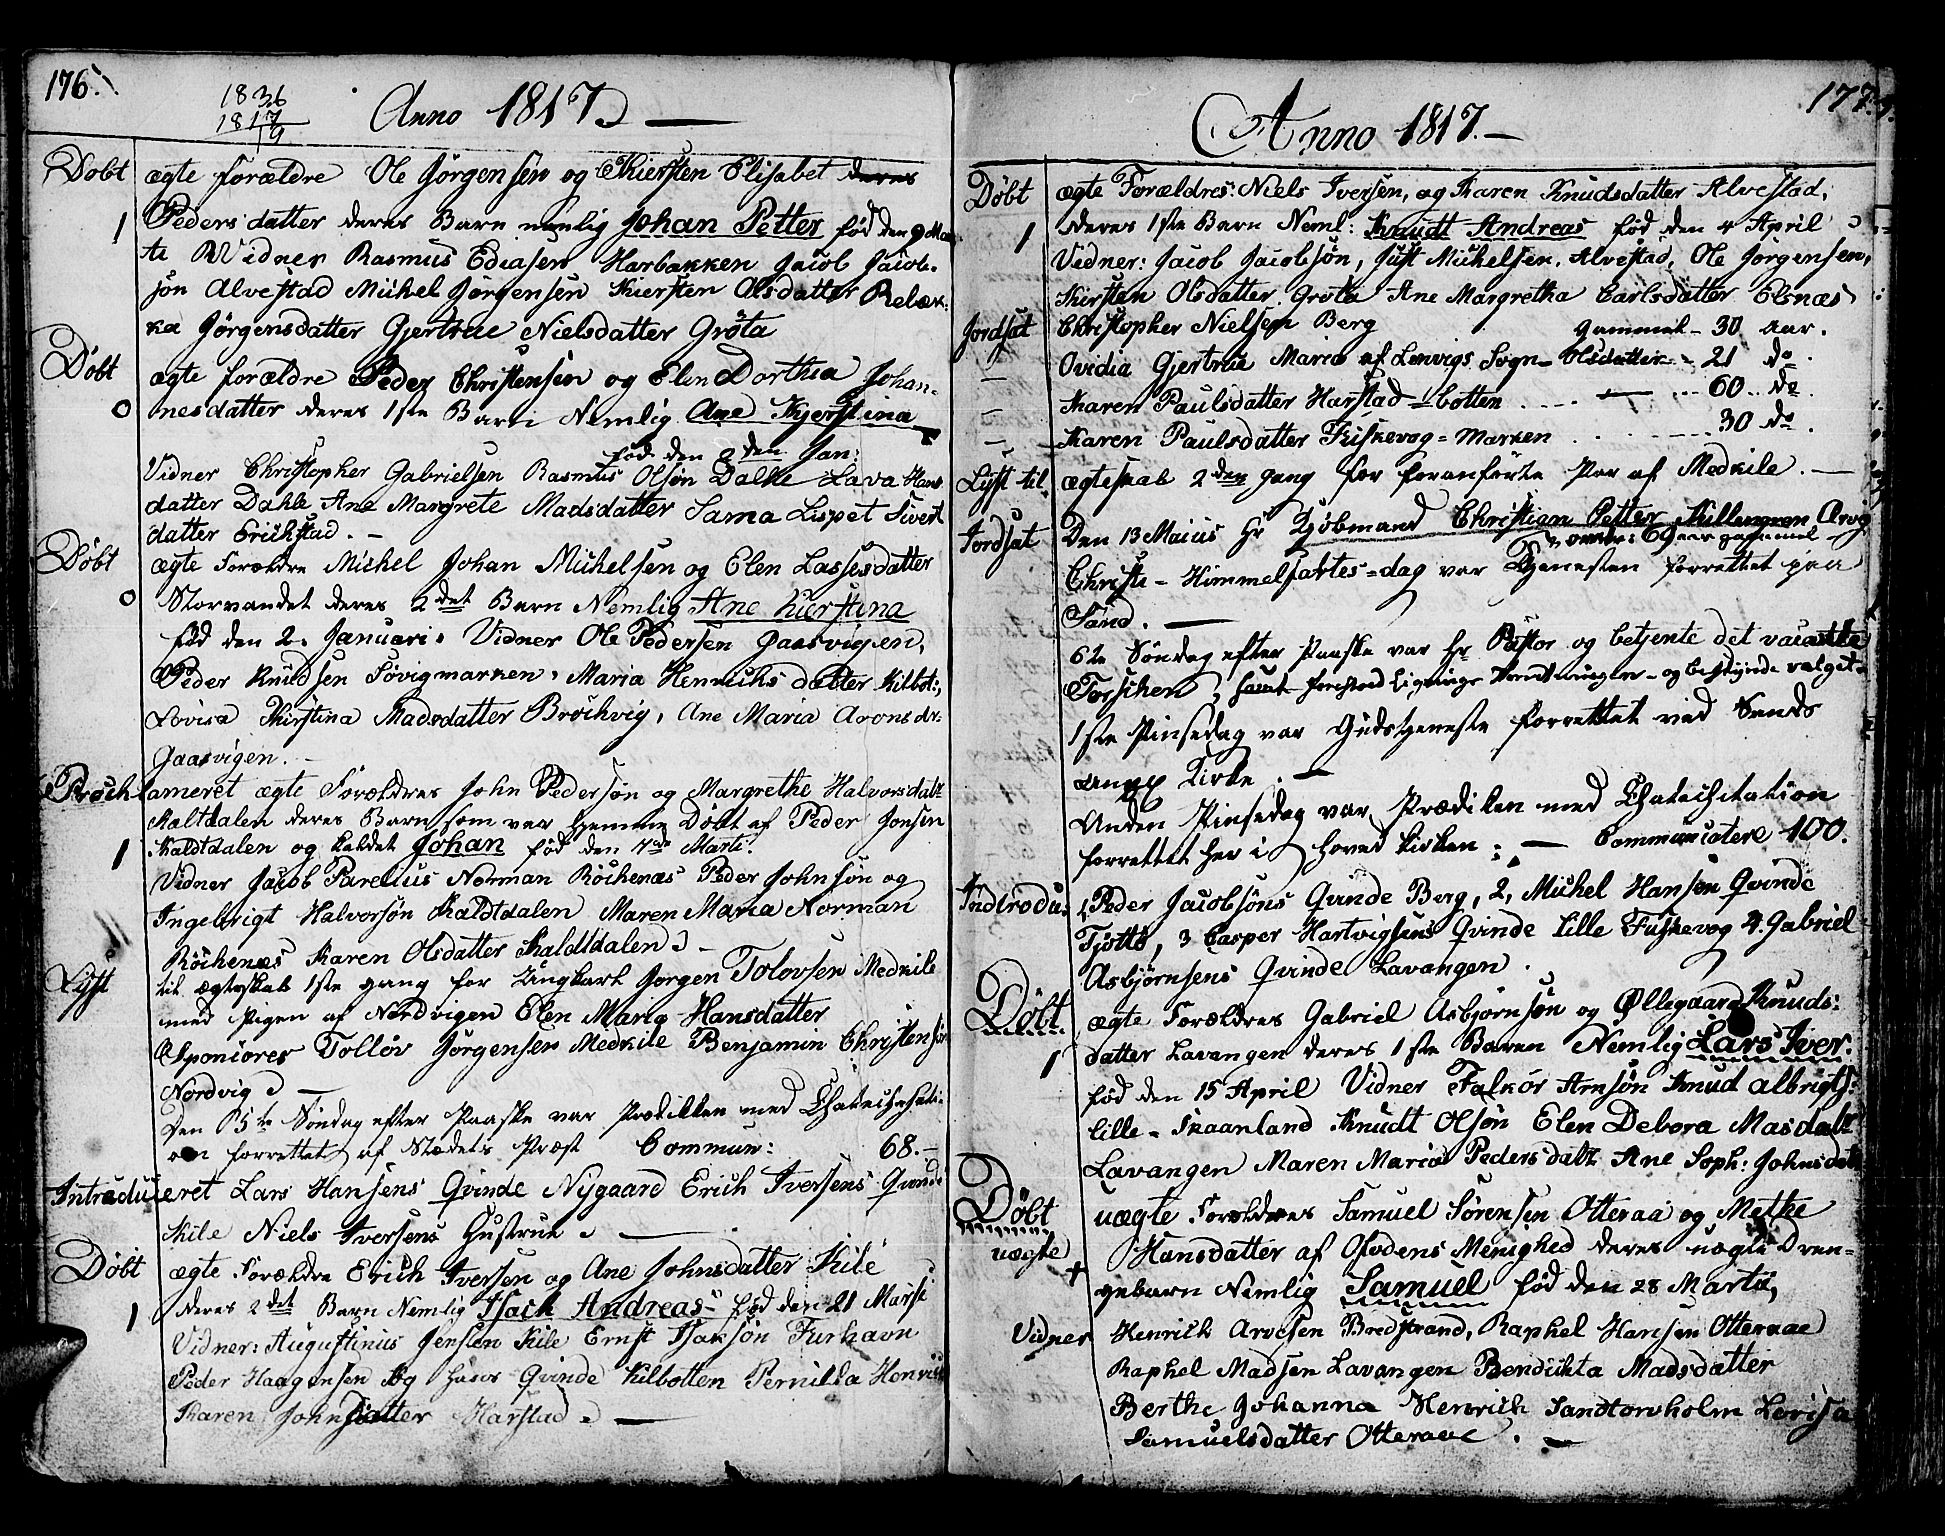 176.
1836
1817
19
Anno 1817
Döbt ægte Forældre Ole Jörgensen og Kiersten Elisabet deres
1 Pedersdatter deres Barn nemlig Johan Petter föd den 9 Mar
ti Widner Rasmus Ediasen Harbakken Jacob Jacob-
sön Alvestad Michel Jörgensen Kiersten Olsdatter Rebæk-
ka Jörgensdatter Gjertrue Nielsdatter Gröta
Döbt ægte forældre Peder Christensen og Elen Dorthea Johan-
0 nesdatter deres 1ste Barn Nemlig Ane Kjerstina
föd den 2den Jan:
Vidner Christopher Gabrielsen Rasmus Olsön Dalle Lava Hans
datter Dahle Ane Margrete Madsdatter Sama Lispet Sivert
datter Erichstad. -
Döbt ægte Forældre Michel Johan Michelsen og Elen Lassesdatter
0 Storvandet deres 2det Barn Nemlig Ane Kierstina
föd den 2. Januari. Vidner Ole Pedersen Gaasvigen,
Peder Knudsen Sövigmarken, Maria Henrichsdatter Kilbot:,
Lovisa Kirstina Madsdatter Bröchvig, Ane Maria Aronsdr.
Gaasvigen. -
Prochlameret ægte Forældres John Pedersön og Margrethe Halvorsdatr
Kaltdalen deres Barn som var hjemme Döbt af Peder Jonsen
1 Kaldtdalen og kaldet Johan föd den 7de Marti.
Vidner Jacob Parelius Norman Röchenæs Peder Johnsön og
Ingebrigt Halvorsön Kaldtdalen Maren Maria Norman
Röchenæs Karen Olsdatter Kaldtdalen -
Lyst til ægteskab 1ste gang for Ungkarl Jörgen Tolovsen Medkile
med Pigen af Nordvigen Elen Maria Hansdatter
Sponiores Tollöv Jörgensen Medkile Benjamin Christensön
Nordvig -
Den 5te Söndag efter Paaske var Prædiken med Chatechesati-
on forrettet af Stædets Præst Commun: 68.-
Introduceret Lars Hansens Qvinde Nygaard Erich Iversens Qvinde
Kile Niels Iversens Hustrue
Döbt ægte Forældre Erich Iversen og Ane Johnsdatter Kile
1 deres 2det Barn Nemlig Isach Andreas föd den 21 Marsi
Vidner: Augustinus Jensen Kile Ernst Isaksön Furhavn
Peder Haagensen og hans Qvinde Kilbotten Pernilla Henrichs
Karen Johnsdatter Harstad. -
177.
Anno 1817. -
Döbt ægte Forældres: Niels Iversen, og Karen Knudsdatter Alvestad,
1 deres 1ste Barn Neml: Knudt Andreas föd den 4 April
Vidner: Jacob Jacobsön, Just Michelsen, Alvestad, Ole Jörgensen,
Kirsten Olsdatter Gröta Ane Margretha Carlsdatter Elsnæs
Jordsat Christopher Nielsen Berg gammel - 30 Aar.
— Ovidia Gjertrue Maria af Lenvigs Sogn - Olsdatter - 21 do.
— Karen Paulsdatter Harstad-botten ... 60 .. do
— Karen Paulsdatter Fiskevog-Marken ... 30 do.
Lyst til ægteskab 2den gang for foranförte Par af Medkile. -
Jordsat Den 13 Maius Hr Kjöbmand Christian Petter Killengreen Örvig
69 aar gammel
Christi-Himmelfartes-dag var Tjenesten forrettet paa
Sand. -
6te Söndag efter Paaske var Hr Pastor og betjente det vacante
Torsken,
1ste Pinsedag var Gudstjeneste forrettet ved Sands
Kirke. -
Anden Pinsedag var Prædiken med Chatechitation
forrettet her i Hoved kirken: - Communicatere 100.
Indtrodus 1, Peder Jacobsöns Qvinde Berg, 2, Michel Hansen Qvinde
Tjotta, 3 Casper Hartvigsens Qvinde Lille Fuskevog 4. Gabriel
Asbjörnsens Qvinde Lavangen.
Döbt ægte Forældres Gabriel Asbjörnsön og Öllegaard Knuds:
1 datter Lavangen deres 1ste Baren Nemlig Lars Iver.
föd den 15 April Vidner Falkör Arnsön Knud Albrigts:
Lille-Skaanland Knudt Olsön Elen Debora Masdatr
Lavangen Maren Maria Pedersdatr Ane Soph: Johnsdat
Döbt uægte Forældres Samuel Sörensen Otteraa og Methe
uægte Hansdatter af Ofodens Menighed deres uægte Dren-
+ gebarn Nemlig Samuel föd den 28 Marti,
Vidner Henrich Arvesen Bredstrand, Raphel Hansen Otteraae
Raphel Madsen Lavangen Bendichta Madsdatter
Berthe Johanna Henrich Sandtorvholm Lovisa
Samuelsdatter Otteraae. -